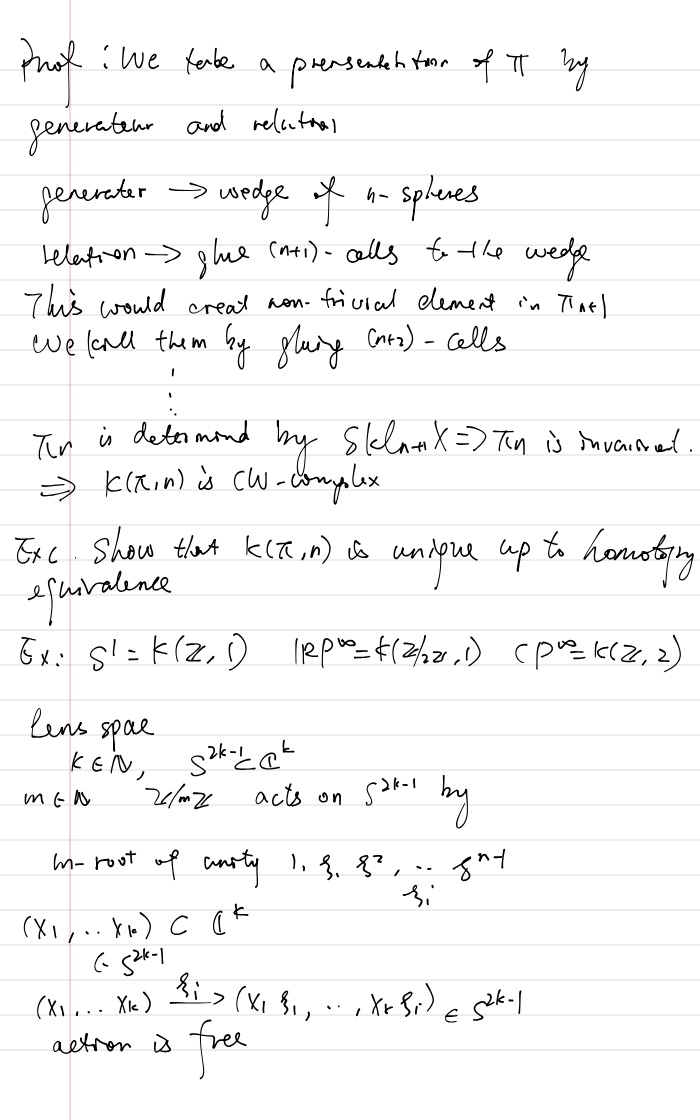 Proof : We take a presentation of π by
generateur and relation
generater → wedge of n-spheres
relation → glue (n+1)-cells to the wedge
This would creat non-trivial element in πn+1
We kill them by gluing (n+2)-cells
⋮
πn is determind by Skln+1 X ⇒ πn is invariant.
⇒ K(π,n) is CW-complex
Exc. Show that K(π,n) is unique up to homotopy
equivalence
Ex: S¹ = K(ℤ,1) ℝP^∞ = K(ℤ/2ℤ,1) ℂP^∞ = K(ℤ,2)
lens space
k ∈ ℕ, S^{2k-1} ⊂ ℂ^k
m ∈ ℕ ℤ/mℤ acts on S^{2k-1} by
m-root of unity 1, ξ, ξ², .. ξ^{n-1}
ξi
(x1, .. xk) ⊂ ℂ^k
∈ S^{2k-1}
(x1, ... xk) —ξi→ (x1 ξ1, .., xk ξi) ∈ S^{2k-1}
action is free